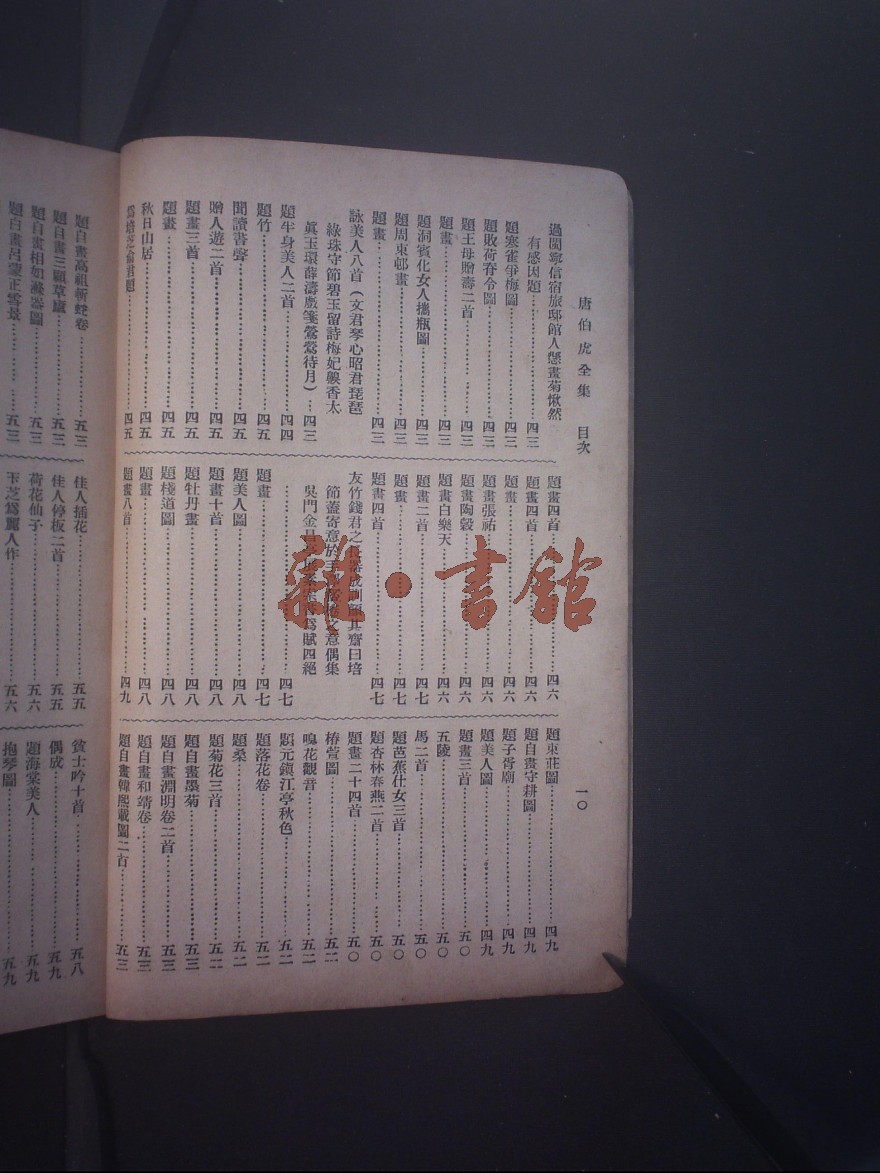 唐伯虎全集 目次
一〇
過閩寧信宿旅邸館人懸畫菊愀然
有感因題……四三
題寒雀爭梅圖……四三
題敗荷脊令圖……四三
題王母贈壽二首……四三
題畫……四三
題洞賓化女人攜瓶圖……四三
題周東邨畫……四三
題畫……四三
詠美人八首（文君琴心昭君琵琶
綠珠守節碧玉留詩梅妃嗅香太
眞玉環薛濤戲箋鶯鶯待月）…四三
題半身美人二首……四四
題竹……四五
聞讀書聲……四五
贈人遊二首……四五
題畫三首……四五
題畫……四五
秋日山居……四五
題……四五
題畫四首……四六
題畫四首……四六
題畫……四六
題畫張祐……四六
題畫陶穀……四六
題畫白樂天……四六
題畫二首……四七
題畫……四七
題畫四首……四七
友竹錢君之長器其齋曰培
節蓋寄意於之意偶集
吳門金昌爲賦四絕
……四七
題畫……四七
題美人圖……四八
題畫十首……四八
題牡丹畫……四八
題棧道圖……四八
題畫……四八
題畫八首……四九
題東莊圖……四九
題自畫守耕圖……四九
題子胥廟……四九
題美人圖……四九
題畫三首……五〇
五陵……五〇
馬二首……五〇
題芭蕉仕女三首……五〇
題杏林春燕二首……五〇
題畫二十四首……五〇
椿萱圖……五二
鳴花觀音……五二
題元鎮江亭秋色……五二
題落花卷……五二
題桑……五二
題菊花三首……五二
題自畫墨菊……五三
題自畫淵明卷二首……五三
題自畫和靖卷……五三
題自畫韓熙載圖二首……五三
題自畫高祖斬蛇卷……五三
題自畫三顧草廬……五三
題自畫相如滌器圖……五三
題自畫呂蒙正雪景……五三
佳人插花……五五
佳人停板二首……五五
荷花仙子……五六
玉芝爲麗人作……五六
貧士吟十首……五八
偶成……五九
題海棠美人……五九
抱琴圖……五九
雜·書館